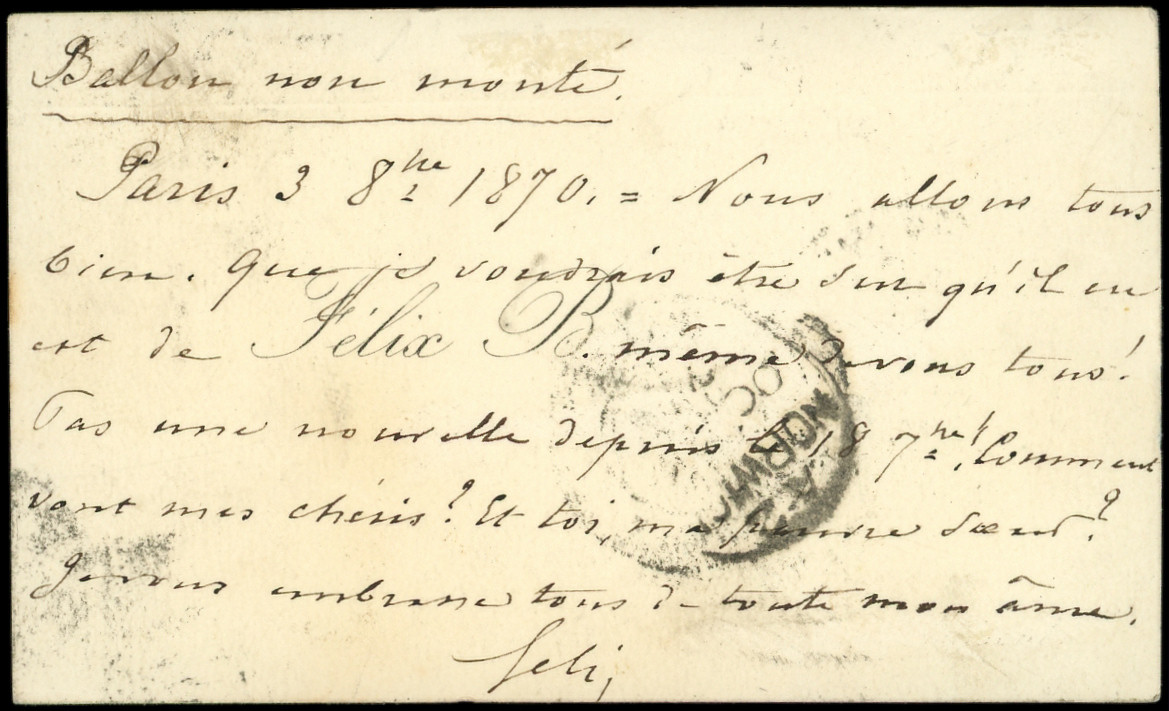 Ballon non monté.
Paris 3 8bre 1870. = Nous allons tous
bien. Que je voudrais être sur qu'il en
est de Félix B. même de vous tous!
Pas une nouvelle depuis le 18 7bre! Comment
vont mes chéris? Et toi, ma pauvre Sœur?
Je vous embrasse tous de toute mon âme.
NORWICH
OC